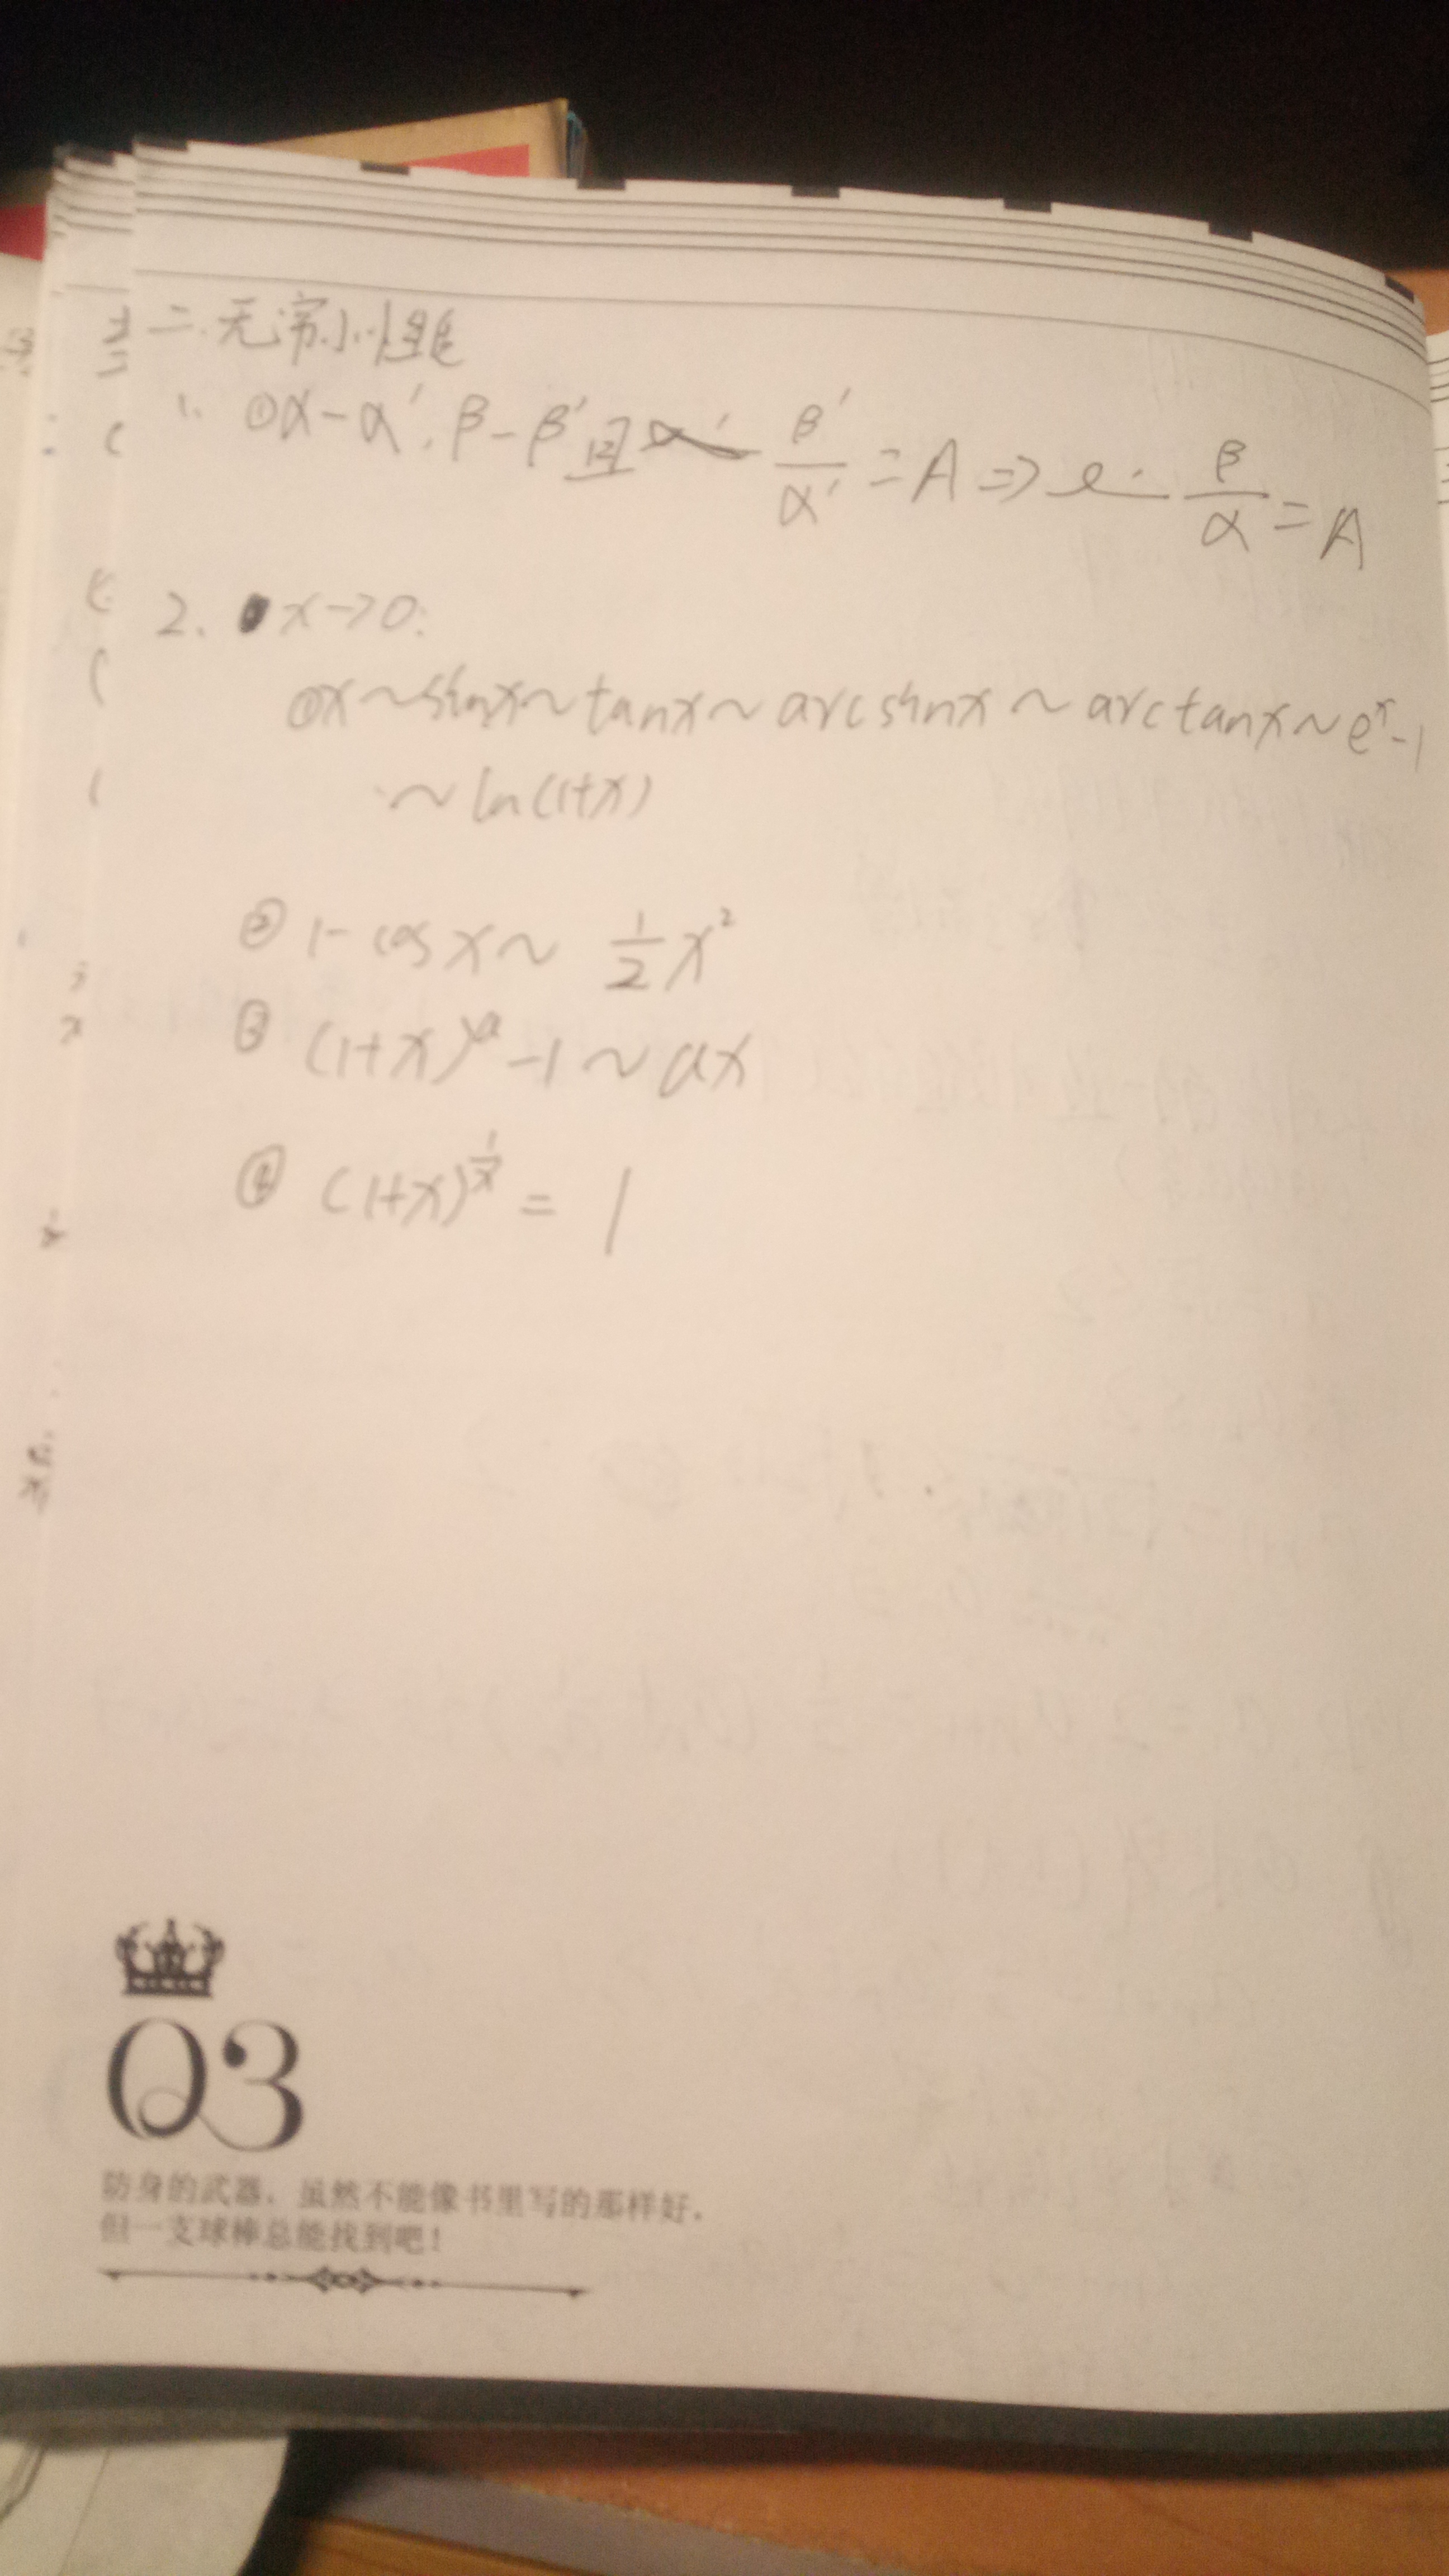 二. 无穷小性质
1. ①α-α′, β-β′且 β′/α′ = A => β/α = A
2. x->0:
①x~sinx~tanx~arcsinx~arctanx~eˣ-1
~ln(1+x)
② 1-cosx~ 1/2 x²
③ (1+x)ᵃ-1~ax
④ (1+x)^(1/x) = 1
03
防身的武器，虽然不能像书里写的那样好，
但一支球棒总能找到吧！